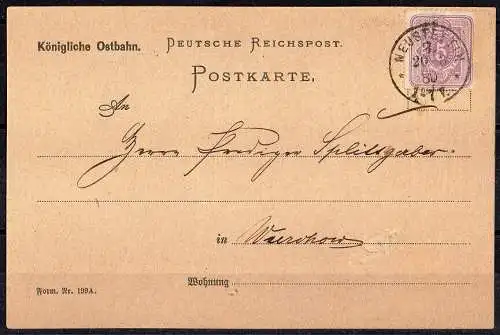 Königliche Ostbahn.
DEUTSCHE REICHSPOST.
POSTKARTE.
NEUSTETTIN
5
80
An
Herrn Prediger Splittgerber
in Wurchow
Wohnung
Form. Nr. 199A.